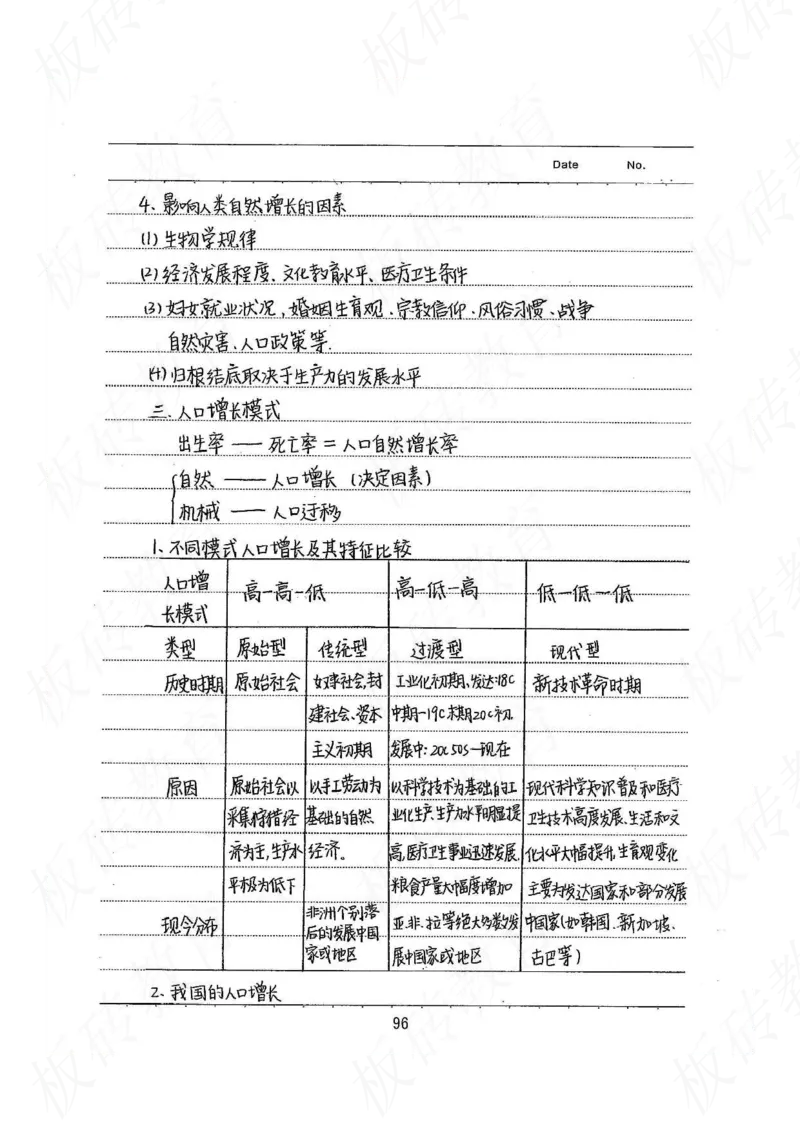 Date No.
4、影响人类自然增长的因素
(1) 生物学规律
(2) 经济发展程度、文化教育水平、医疗卫生条件
(3) 妇女就业状况,婚姻生育观、宗教信仰、风俗习惯、战争
自然灾害、人口政策等.
(4) 归根结底取决于生产力的发展水平
三、人口增长模式
出生率 — 死亡率 = 人口自然增长率
自然 —— 人口增长 (决定因素)
机械 —— 人口迁移
1、不同模式人口增长及其特征比较
人口增 高-高-低 高-低-高 低-低-低
长模式
类型 原始型 传统型 过渡型 现代型
历史时期 原始社会 奴隶社会,封 工业化初期、发达:18C 新技术革命时期
建社会、资本 中期-19C末期20C初.
主义初期 发展中:20C50S-现在
原因 原始社会以 以手工劳动为 以科学技术为基础的工 现代科学知识普及和医疗
采集狩猎经 基础的自然 业化生产、生产力水平明显提 卫生技术高度发展、生活和文
济为主,生产水 经济。 高,医疗卫生事业迅速发展, 化水平大幅提升,生育观变化
平极为低下 粮食产量大幅度增加 主要为发达国家和部分发展
现今分布 非洲个别落 亚.非.拉等绝大多数发 中国家(如韩国.新加坡.
后的发展中国
家或地区 展中国家或地区 古巴等)
2、我国的人口增长
96
板砖教育